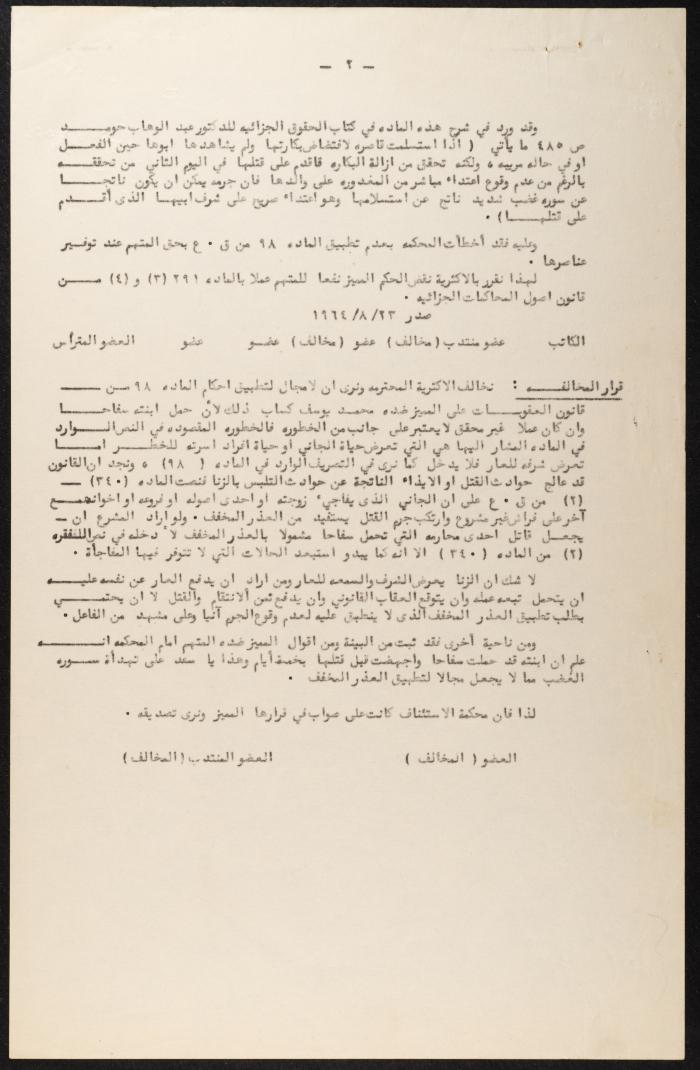 - ٢ -
وقد ورد في شرح هذه الماده في كتاب الحقوق الجزائيه للدكتور عبد الوهاب حومـــد
ص ٤٨٥ ما يأتي ( اذا استسلمت قاصره لافتضاض بكارتها ولم يشاهدها ابوها حين الفعـــل
او في حاله مريبه ، ولكنه تحقق من ازالة البكاره فاقدم على قتلها في اليوم الثاني من تحققـــه
بالرغم من عدم وقوع اعتداء مباشر من المغدوره على والدها فان جرمه يمكن ان يكون ناتجـــا
عن سوره غضب شديد ناتج عن استسلامها وهو اعتداء صريح على شرف ابيهـا الذى أقـــدم
على قتلهـــا ) .
وعليه فقد أخطأت المحكمه بعدم تطبيق الماده ٩٨ من ق . ع بحق المتهم عند توفـير
عناصرها .
لهذا نقرر بالاكثرية نقض الحكم المميز نفعا للمتهم عملا بالماده ٢٩١ (٣) و (٤) مـــن
قانون اصول المحاكمات الجزائيه .
صدر ٢٣/٨/١٩٦٤
الكاتب عضو منتدب (مخالف) عضو (مخالف) عضـــو عضو العضو المترأس
قرار المخالفـــه : نخالف الاكثرية المحترمه ونرى ان لامجال لتطبيق احكام الماده ٩٨ مـــن
قانون العقوبـــات على المميز ضده محمـد يوسف كساب ذلك لأن حمل ابنته سفاحـــا
وان كان عملا غير محقق لا يعتبر على جانب من الخطوره فالخطوره المقصوده في النص الـــوارد
في الماده المشار اليها هي التي تعرض حياة الجاني او حياة افراد اسرته للخطـــر امـــا
تعرض شرفه للعار فلا يدخل كما نرى في التصريف الوارد في الماده ( ٩٨) ، ونجد ان القانون
قد عالج حوادث القتل او الايذاء الناتجة عن حوادث التلبس بالزنا فنصت الماده (٣٤٠)
(٢) من ق . ع على ان الجاني الذى يفاجيء زوجته او احدى اصوله او فروعه او اخواتهـــمـع
آخر على فراش غير مشروع وارتكب جرم القتل يستفيد من العذر المخفف . ولو اراد المشرع ان
يجعـــل قاتل احدى محارمه التي تحمل سفاحا مشمولا بالعذر المخفف لأ دخله في نص للفقره
(٢) من الماده (٣٤٠) الا انه كما يبدو استبعد الحالات التي لا تتوفر فيها المفاجأة .
لا شك ان الزنا يعرض الشرف والسمعه للعار ومن اراد ان يدفع العار عن نفسه عليـــه
ان يتحمل تبعه عمله وان يتوقع العقاب القانوني وان يدفع ثمن الانتقام والقتل لا ان يحتمـــي
بطلب تطبيق العذر المخفف الذى لا ينطبق عليه لعدم وقوع الجرم آنيا وعلى مشهد من الفاعل .
ومن ناحية أخرى فقد ثبت من البينة ومن اقوال المميز ضده المتهم امام المحكمه انـــه
علم ان ابنته قد حملت سفاحا واجهضت قبل قتلها بخمسة أيام وهذا يساعد على تهدأة ســـوره
الغضب مما لا يجعل مجالا لتطبيق العذر المخفف .
لذا فان محكمة الاستئناف كانت على صواب في قرارها المميز ونرى تصديقه .
العضو ( المخالف ) العضو المنتدب (المخالف)